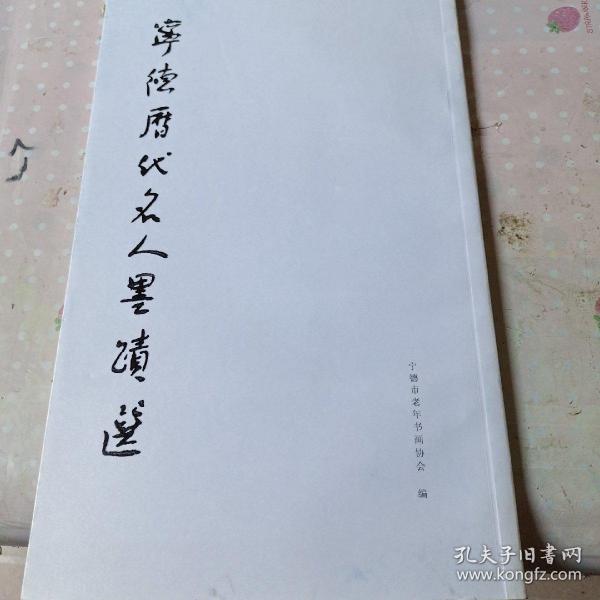 寧德歷代名人墨蹟選
宁德市老年书画协会 编
孔夫子旧書网
www.kongfz.com